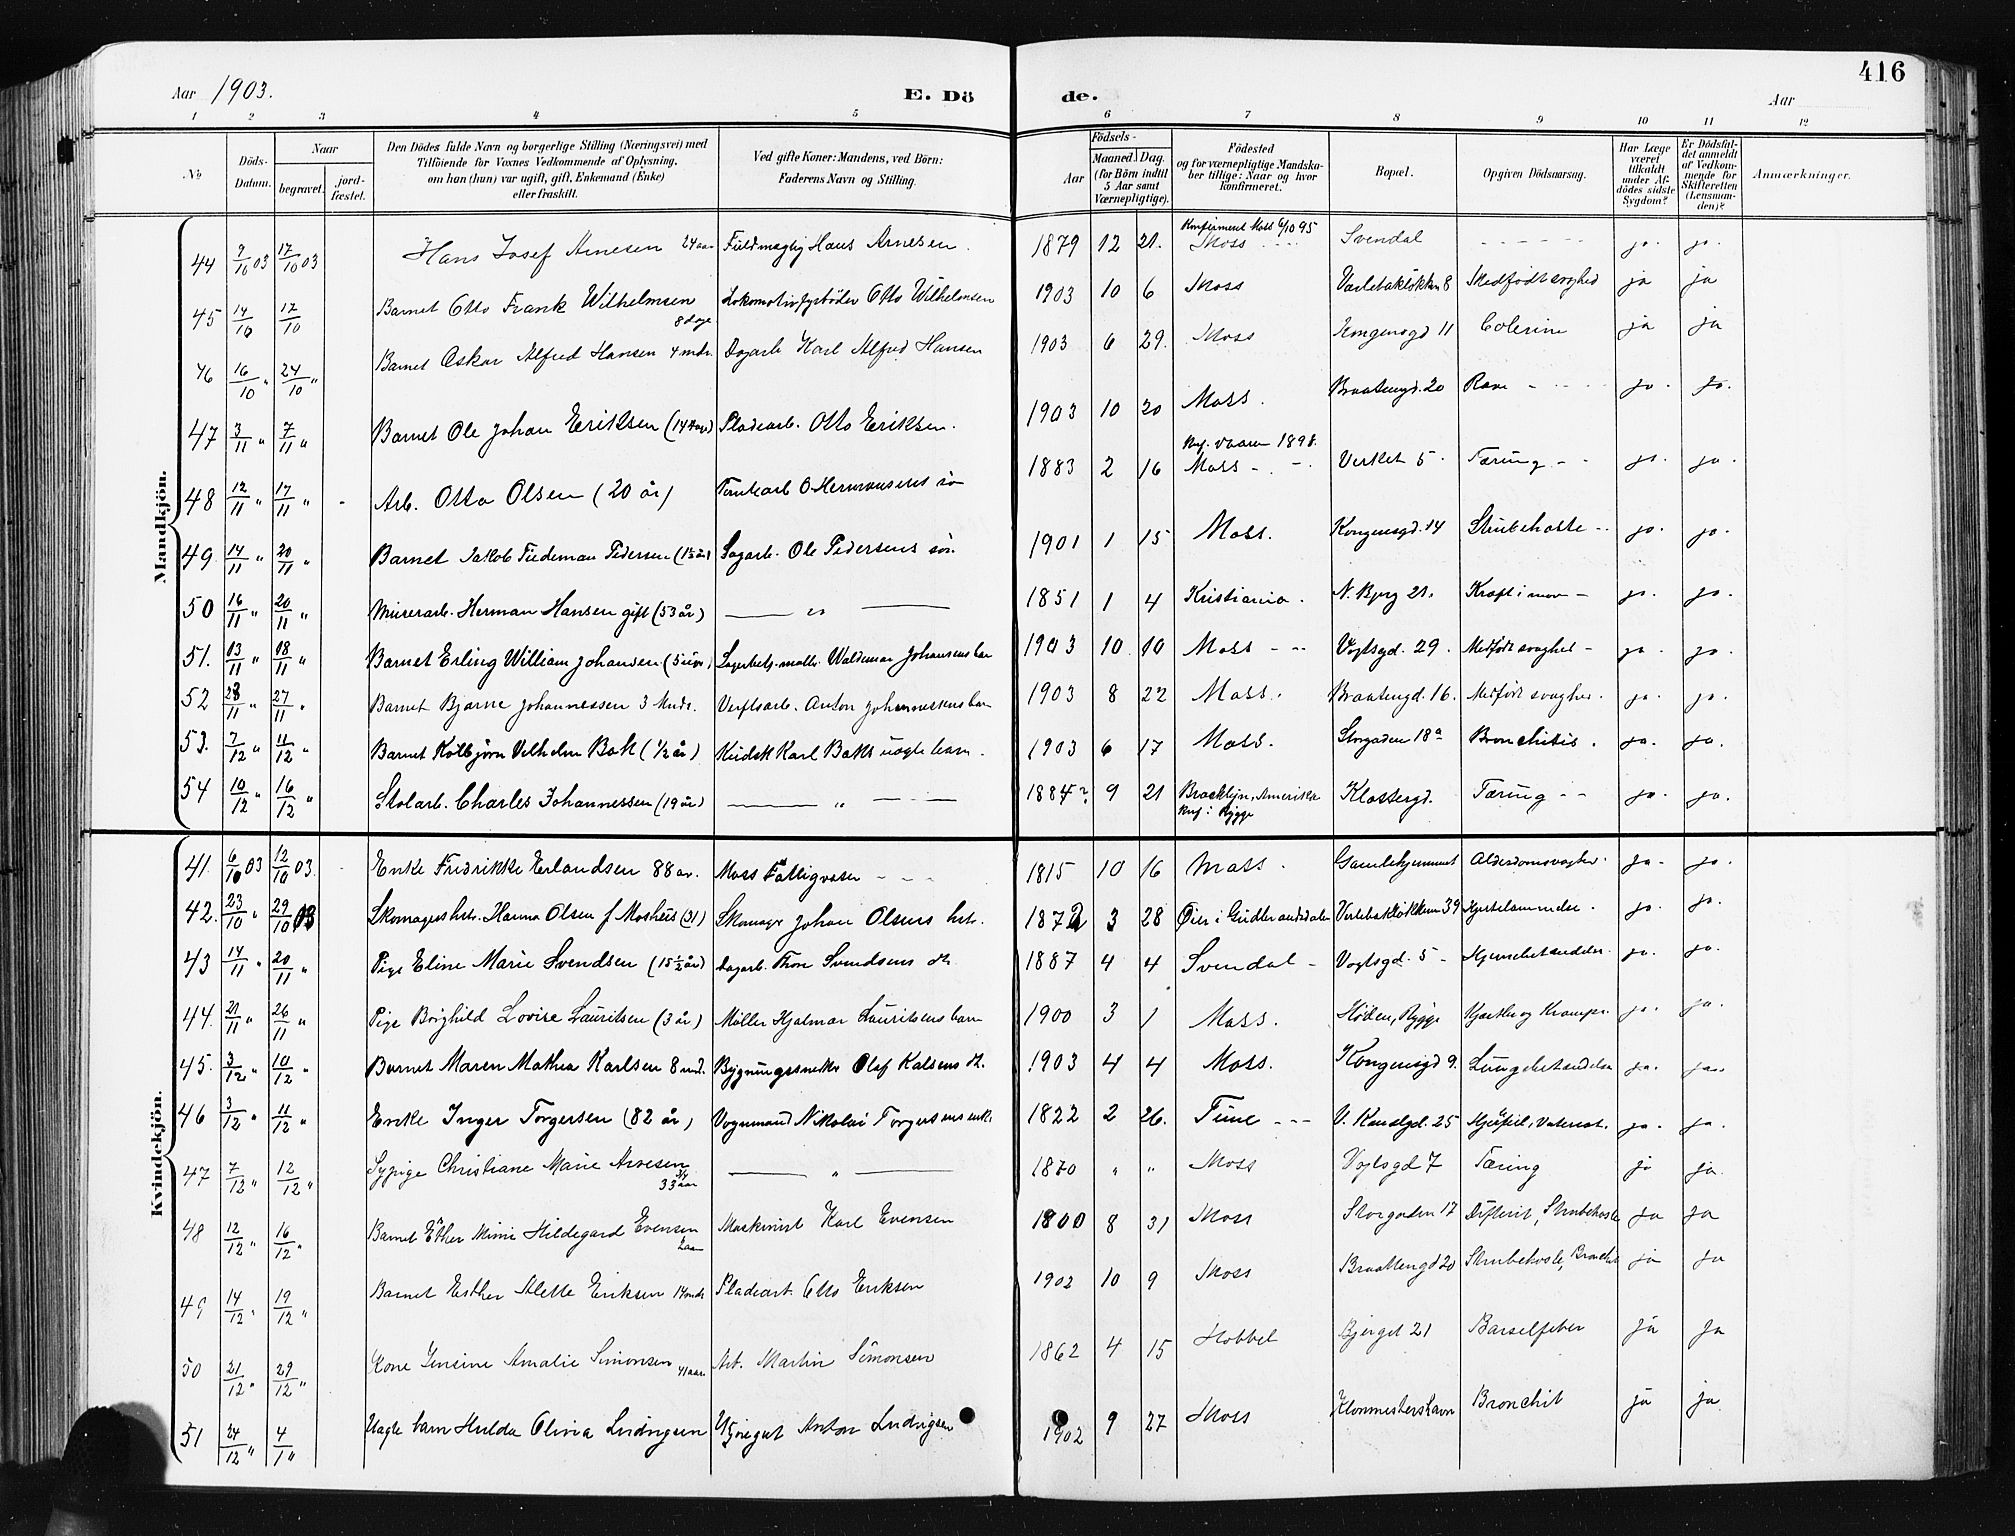 416
Aar 1903. E. Dö de. Aar
1 2 3 4 5 6 7 8 9 10 11 12
No
Döds-Datum.
Naar begravet. jord-fæstet.
Den Dödes fulde Navn og borgerlige Stilling (Næringsvei) med
Tilföiende for Voxnes Vedkommende af Oplysning,
om han (hun) var ugift, gift, Enkemand (Enke)
eller fraskilt.
Ved gifte Koner: Mandens, ved Börn:
Faderens Navn og Stilling.
Födsels-
Aar Maaned. Dag.
(for Börn indtil
5 Aar samt
Værnepligtige).
Födested
og for værnepligtige Mandska-
ber tillige: Naar og hvor
konfirmeret.
Bopæl.
Opgiven Dödsaarsag.
Har Læge
været
tilkaldt
under Af-
dödes sidste
Sygdom?
Er Dödsfal-
det anmeldt
af Vedkom-
mende for
Skifteretten
(Lensman-
den)?
Anmærkninger.
Mandkjön.
44 9/10 03 17/10 03 Hans Josef Arnesen 24 aar Fuldmægtig Hans Arnesen. 1879 12 21. Konfirmeret Moss 6/10 95 Moss Svendal - - - - - - ja. ja.
45 14/10 17/10 Barnet Otto Frank Wilhelmsen 8 dage Lokomotivfyrbøder Otto Wilhelmsen 1903 10 6 Moss Værlebakløkken 8 Medfødt svaghed ja ja
46 16/10 " 24/10 " Barnet Oskar Alfred Hansen 4 mdr. Dagarb Karl Alfred Hansen 1903 6 29. Moss Kongensgd 11 Colerine ja ja
47 3/11 " 7/11 " Barnet Ole Johan Eriksen Pladearb. Otto Eriksen. 1903 10 20 Moss. Braatengd. 20 ja. ja.
48 12/11 " 17/11 " Arb. Otto Olsen (20 år) 1883 2 16 Knf. vaaren 1898. Moss Verket 5. Tæring - - ja. ja.
49 14/11 " 20/11 " Barnet Jakob Tiedeman Pedersen (1½ år) Sagarb. Ole Pedersens søn 1901 1 15 Moss. Kongensgd. 14 Strubehoste - ja. ja.
50 16/11 " 20/11 " Murerarb. Herman Hansen gift (53 år) 1851 1 4 Kristiania. N. Bjerg 21. Kræft i mav - ja. ja.
51. 13/11 " 18/11 " Barnet Erling William Johansen Waldemar Johansens barn 1903 10 10 Moss - - Vogtsgd. 29. Medfødt svaghed - ja. ja.
52 23/11 " 27/11 " Barnet Bjarne Johannessen 3 Mndr. Verftsarb. Anton Johannessens barn 1903 8 22 Moss. Braatengd. 16. Medfødt svaghed. ja. ja.
53. 7/12 " 11/12 " Barnet Kolbjørn Vilhelm Bak (½ år) Kudsk Karl Baks uægte barn. 1903 6 17 Moss. Storgaden 18a Bronchitis. ja. ja.
54 10/12 " 16/12 " Stolarb. Charles Johannessen (19 år) 1884? 9 21 Brooklyn, Amerika knf. i Rygge Klostergd. Tæring - - ja. ja.
Kvindekjön.
41. 6/10 03 12/10 03. Enke Fredrikke Erlandsen 88 år. Moss Fattigvæsen 1815 10 16 Moss. Gamlehjemmet Alderdomsvaghed. ja. ja.
42. 23/10 " 29/10 03 Skomagershst. Hanna Olsen f Moshus (31) Skomager Johan Olsens hst. 1872 3 28 Øier i Gudbrandsdalen Værlebakløkken 39 Hjertelammelse. ja. ja.
43 14/11 " 20/11 " Pige Eline Marie Svendsen (15½ år) Dagarb. Thor Svendsens dt. 1887 4 4 Svendal - Vogtsgd. 5 - Hjernebetændelse. ja. ja.
44. 21/11 " 26/11 " Pige Borghild Lovise Lauritsen (3 år) Møller Hjalmar Lauritsens barn 1900 3 1 Moss. Høiden, Rygge ja. ja.
45. 3/12. " 10/12 " Barnet Maren Mathea Karlsen 8 md. Bygningssnekker Olaf Kalsens dt. 1903 4 4 Moss. Kongensgd 9. Lungebetændelse ja. ja.
46 3/12 " 11/12 " Enke Inger Torgersen (82 år) Vognmand Nikolai Torgersens enke. 1822 2 26. Tune - - - V. Kanalgd. 25 ja. ja.
47 7/12 " 12/12 " Sypige Christiane Marie Arnesen 33 3/4 aar 1870 " " Moss Vogtsgd 7 Tæring ja ja.
48 12/12 " 16/12 " Barnet Esther Mimi Hildegard Evensen Maskinist Karl Evensen 1900 8 31 Moss Storgaden 17 Difterit, Strubehoste ja ja
49 14/12 " 19/12 " Barnet Esther Alette Eriksen 14 mdr Pladearb. Otto Eriksen 1902 10 9 Moss Braatengd 20 Strubehoste, Bronchit ja ja
50 21/12 " 29/12 " Kone Jensine Amalie Simonsen 41 aar. Arb. Martin Simonsen 1862 4 15 Hobbel Bjerget 21 Barselfeber ja ja
51 24/12 " 4/1 " Uægte barn Hulda Olivia Ludvigsen Anton Ludvigsen 1902 9 27 Moss Bronchit ja ja